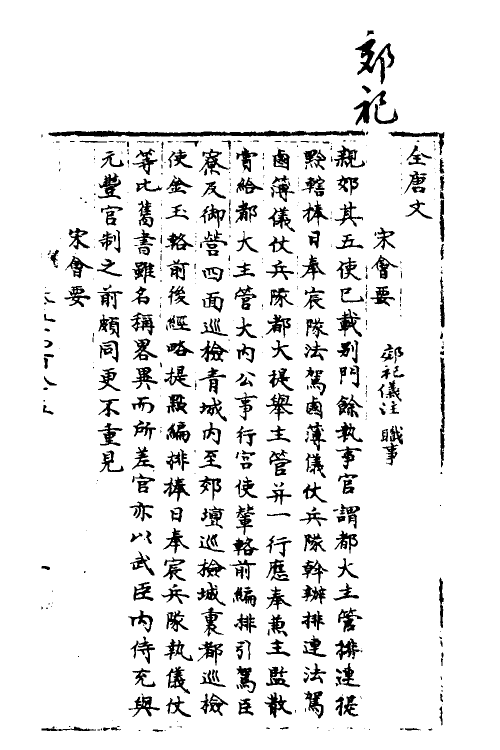 郊祀
全唐文
宋會要 郊祀儀注 職事
親郊其五使已載别門餘執事官謂都大主管排連提
㸃轄捧日奉宸隊法駕鹵簿儀仗兵隊幹辦排連法駕
鹵簿儀仗兵隊都大提舉主管并一行應奉兼主監散
賞給都大主管大内公事行宫使輦輅前編排引駕臣
寮及御營四面巡檢青城内至郊壇巡檢城裏都巡檢
使金玉輅前後經略提㸃編排捧日奉宸兵隊執儀仗
等比舊書雖名稱畧異而所差官亦以武臣内侍充與
元豐官制之前頗同更不重見
宋會要
一